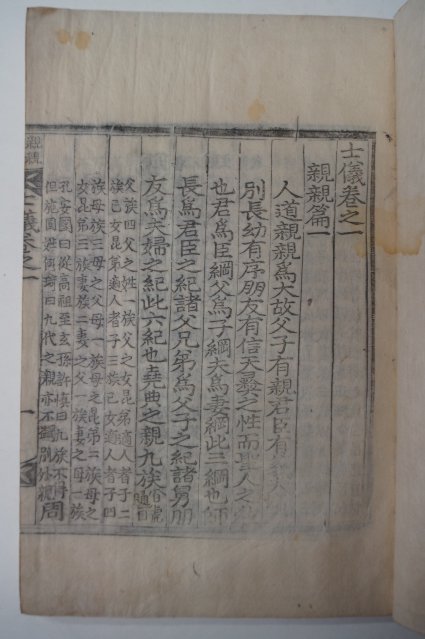 士儀卷之一
親親篇一
人道親親爲大故父子有親君臣有義
別長幼有序朋友有信天彛之性而聖人之
也君爲臣綱父爲子綱夫爲妻綱此三綱也師
長爲君臣之紀諸父兄弟爲父子之紀諸舅朋
友爲夫婦之紀此六紀也堯典之親九族
父族四父之姓一族父之女昆弟適人者子二
族己女昆弟適人者子三族己女適人者子四
族母族三母之父母一族母之昆弟二族母之
女昆弟三族妻族二妻之父一族妻之母一族
孔安國曰從高祖至玄孫許愼曰九族不得
但施
曰九代之親亦不
周
親親
士儀卷之一
一